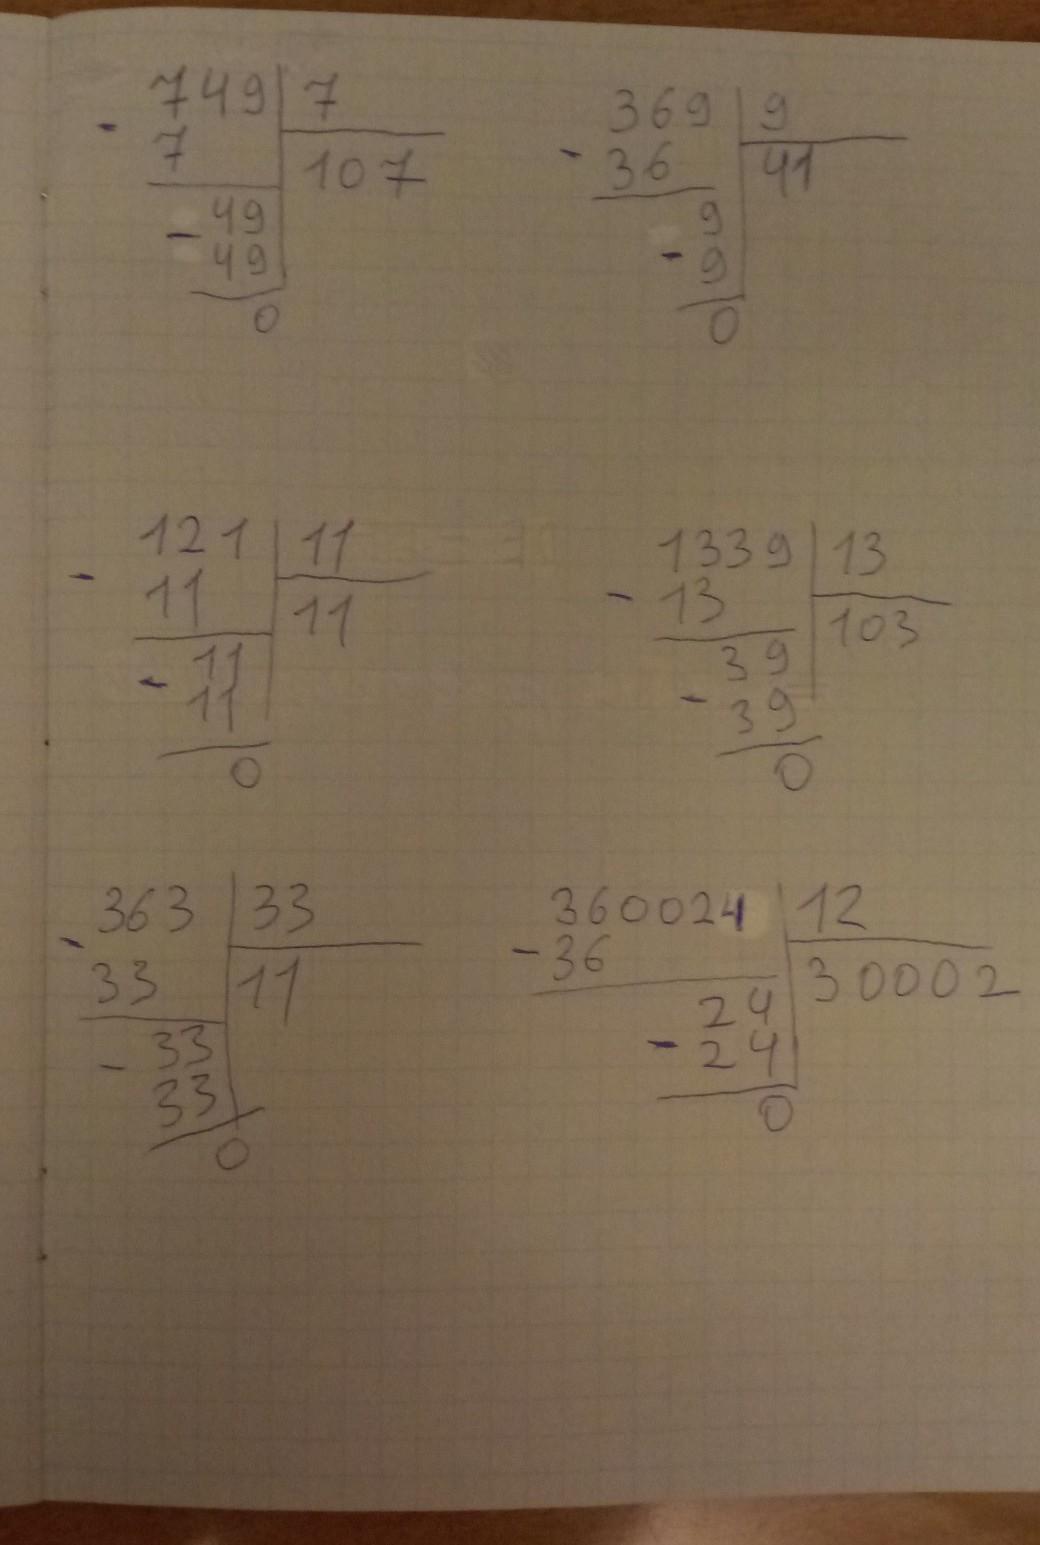 749 7
- 7
107
- 49
49
0
369 9
- 36
41
9
- 9
0
121 11
- 11
11
- 11
11
0
1339 13
- 13
103
39
- 39
0
363 33
- 33
11
- 33
33
0
360024 12
- 36
30002
24
- 24
0